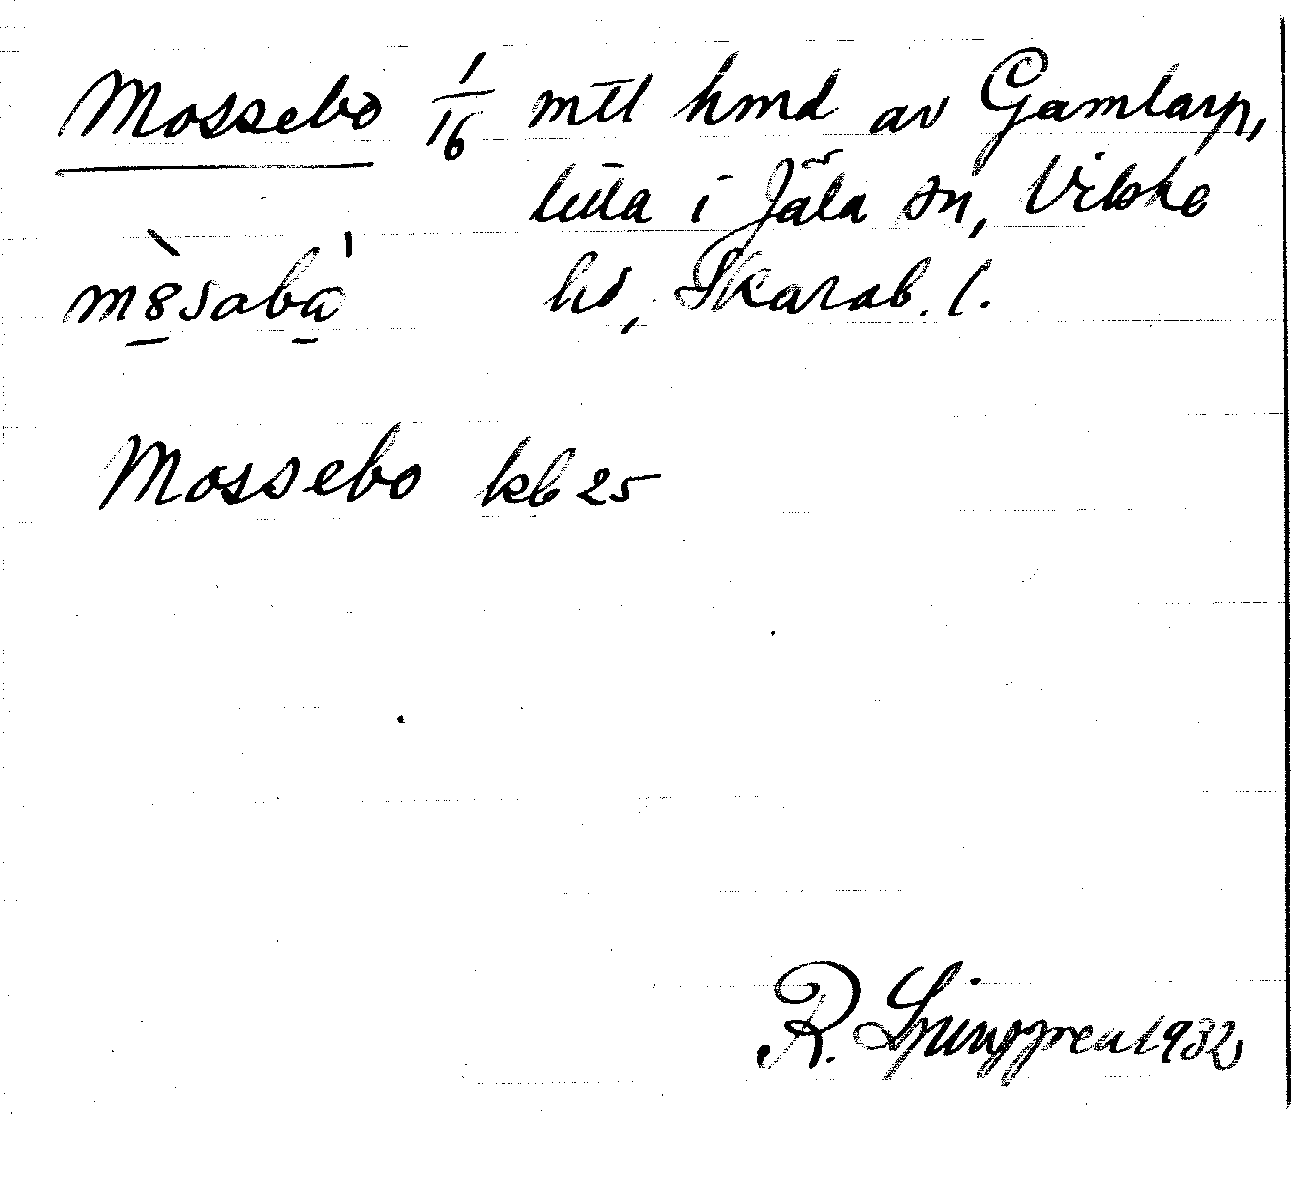 Mossebo 1/16 mtl hmd av Gamlarp,
lilla i Jäla sn, Vilske
hd, Skarab. l.
Mossebo kb 25
R. Ljunggren 1932